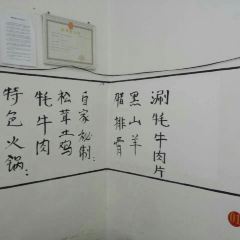 特色火锅：
牦牛肉
松茸土鸡
自家秘制：
腊排骨
黑山羊
涮牦牛肉片